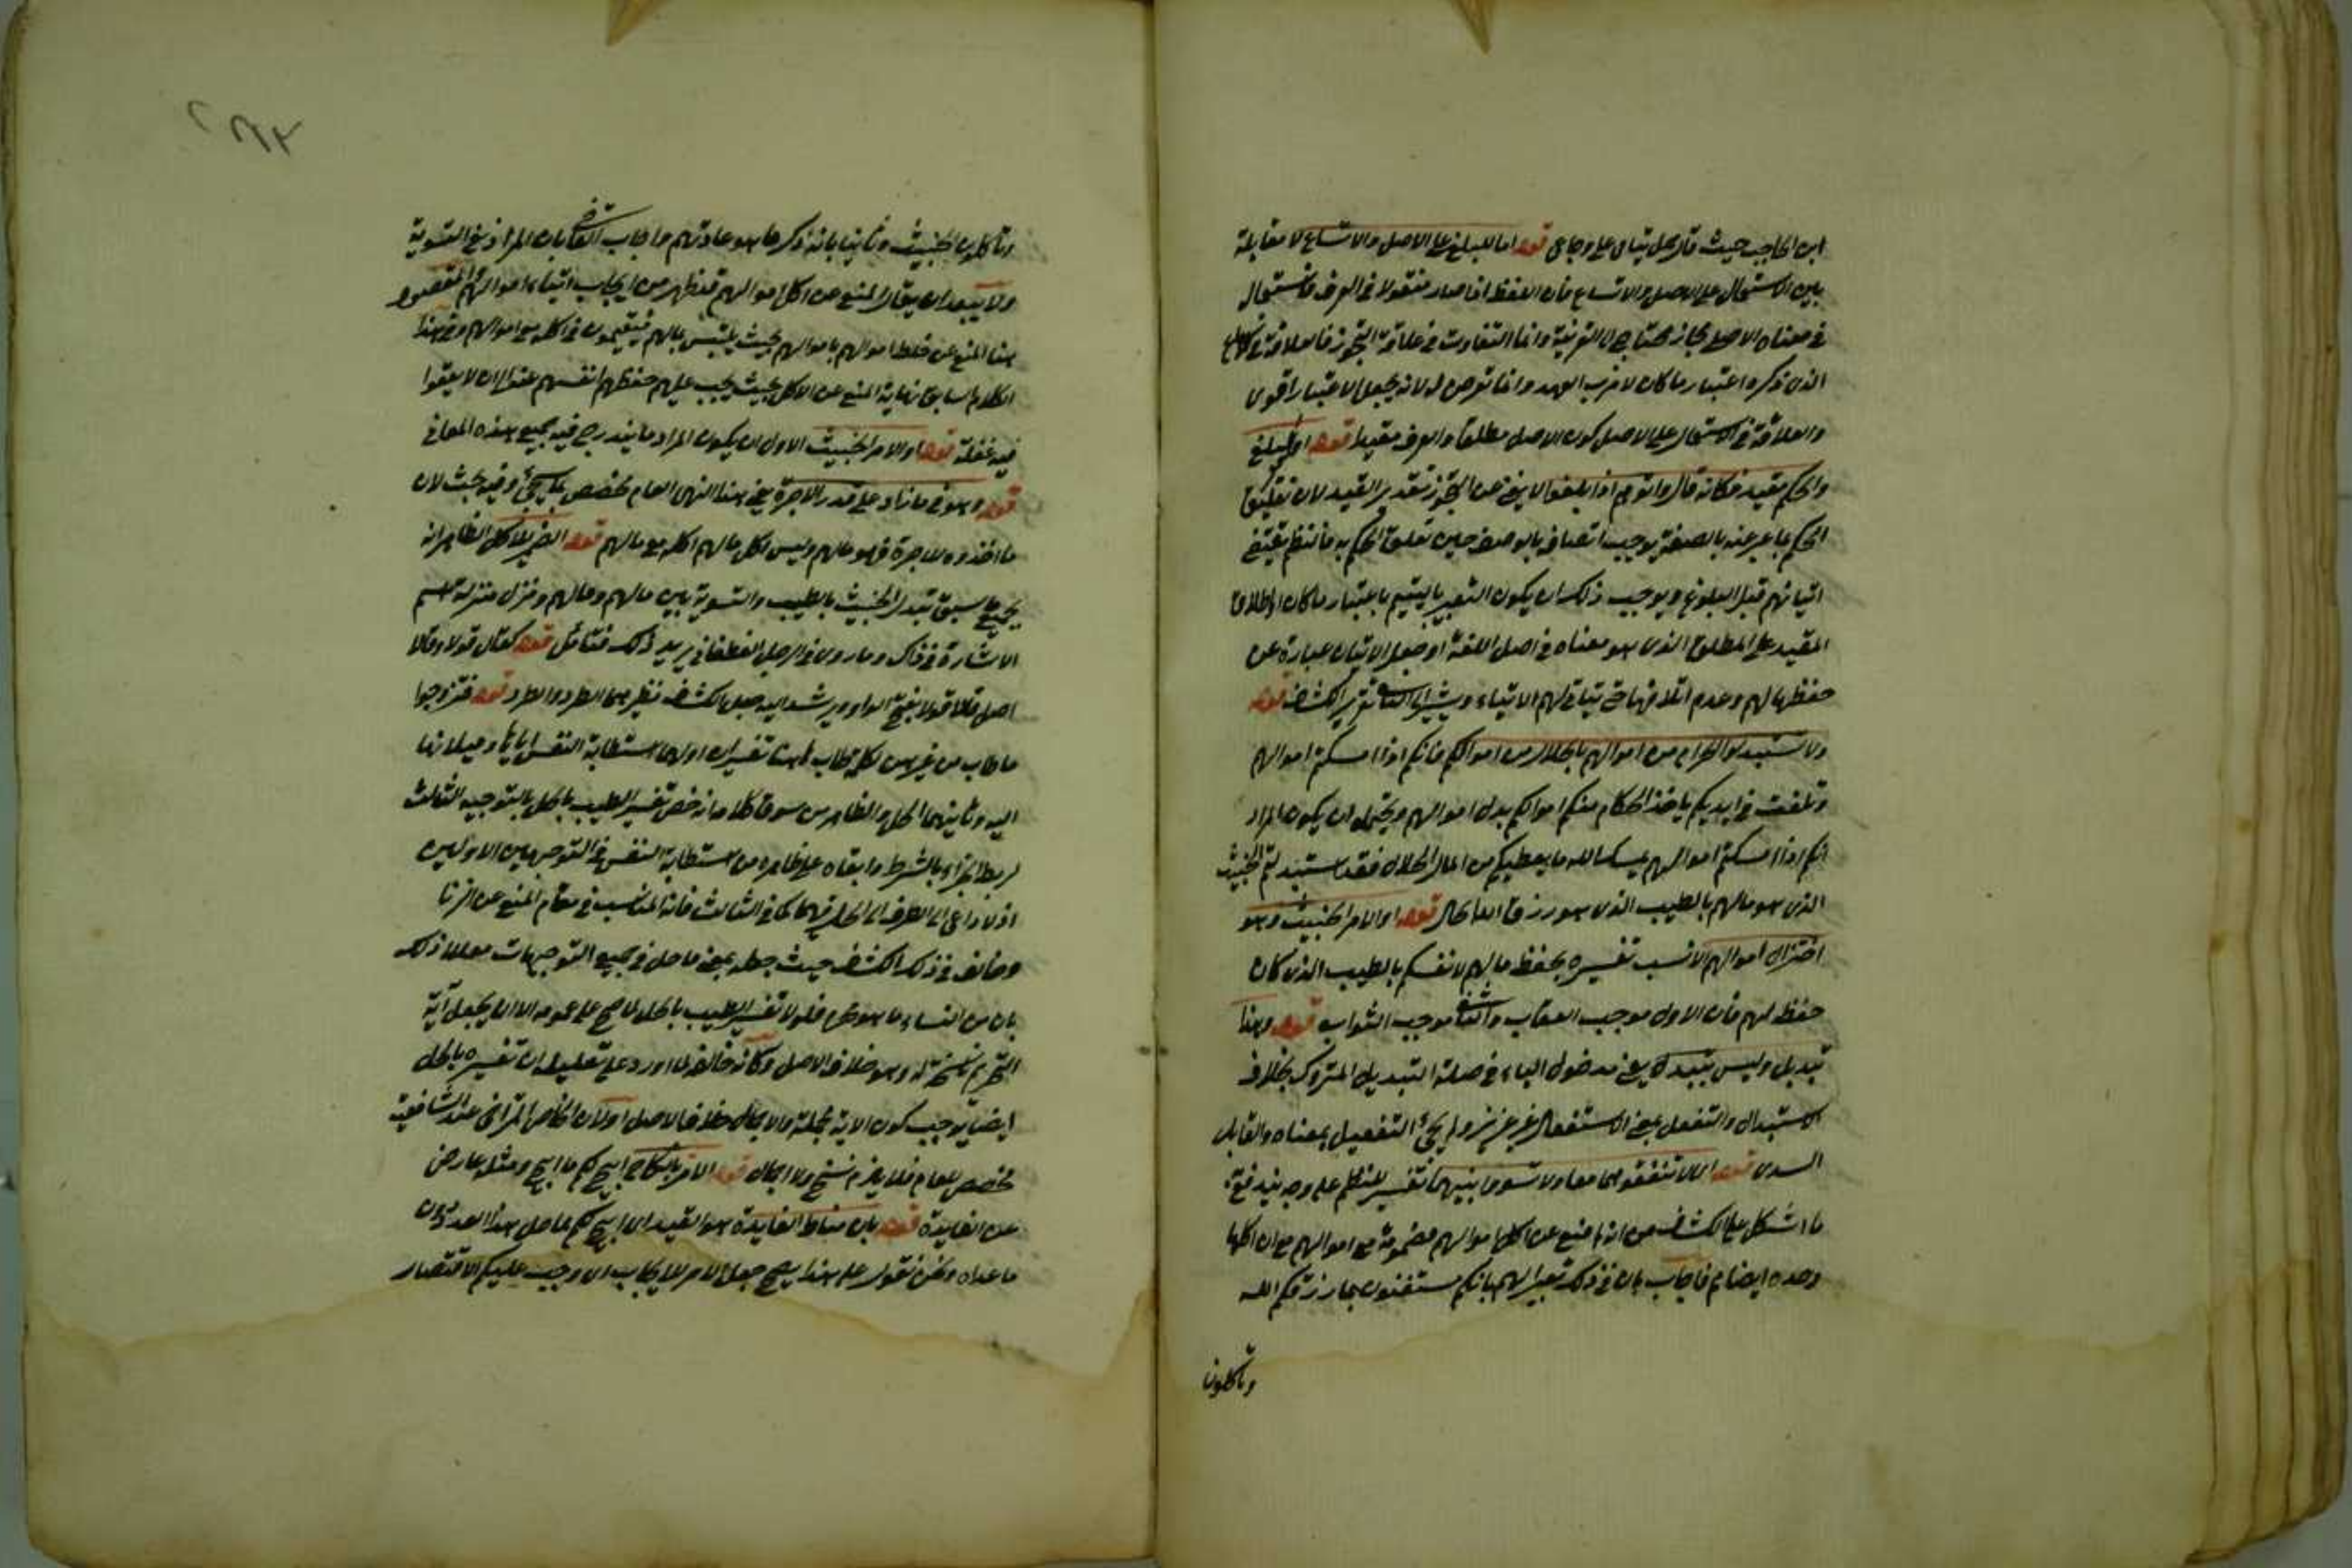 ابن الحاجب حيث قال كل يتامى على وجاعى قوله اما للبلغ على الاصل والاتساع لا مقابلة
بين الاستعمال على الاصل والاتساع فان اللفظ اذا صار منقولا فى العرف فاستعمال
فى معناه الاصلى مجاز محتاج الى القرينة وانما التفاوت فى علاقة التجوز فالعلاقة فى
الذى ذكره اعتبار ما كان لا قرب العهد وانما تعرض له لانه يجعل الاعتبار اقوى
والعلاقة فى الاستعمال على الاصل كون الاصل مطلقا والعرف مقيدا قوله او لغير البلغ
والحكم مقيد فكانه قال واتوهم اذا بلغوا لا يغنى عن التجوز بتقدير القيد لان تعليق
الحكم بما عبر عنه بالصفة يوجب اتصافه بالوصف حين تعلق الحكم به فالنظم يقتضى
اتيانهم قبل البلوغ ويوجب ذلك ان يكون التعبير باليتيم باعتبار ما كان او اطلاق
المقيد على المطلق الذى هو معناه فى اصل اللغة او جعل الاتيان عبارة عن
حفظها لهم وعدم اتلافها حتى يتاتى لهم الايتاء ويشير الى الثانى تقرير الكشف قوله
ولا تستبدلوا الحرام من اموالهم بالحلال من اموالكم فانكم اذا امسكتم اموالهم
وتلفت فى ايديكم ياخذ الحكام منكم اموالكم بدل اموالهم ويحتمل ان يكون المراد
انكم اذا امسكتم اموالهم يمسك الله ما يعطيكم من المال الحلال فقد استبدلتم الخبيث
الذى هو مالهم بالطيب الذى هو رزق الله الحلال قوله او الامر الخبيث وهو
اختزال اموالهم الانسب تفسيره بحفظ مالهم لانفسكم بالطيب الذى كان
حفظ لهم فان الاول موجب العقاب والثانى موجب الثواب قوله وهذا
تبديل وليس بتبدل يعنى مدخول الباء فى صلة التبديل المتروك بخلاف
الاستبدال والتفعل بمعنى الاستفعال غير عزيز ولم يجئ التفعيل بمعناه والقابل
السدى قوله اى لا تنفقوهما معا ولا تسووا بينهما تفسير للنظم على وجه يندفع
ما اشكل على الكشف من انه لم منع عن اكل اموالهم مضمومة مع اموالهم مع ان اكلها
وحده ايضا حرام فاجاب بان فى ذلك تعييرا لهم بانكم مستغنون بما رزقكم الله
وتاكلون
وتاكلون الخبيث وثانيا بانه ذكر ما هو عادتهم واجاب القاضى بان المراد منع التسوية
ولا يبعد ان يقال المنع عن اكل اموالهم قد ظهر من ايجاب ايتاء اموالهم المقصود
هنا المنع عن خلط اموالهم باموالهم بحيث يلتبس مالهم فيقعون فى اكله مع اموالهم وفى هذا
الكلام السابق نهاية المنع عن الاكل بحيث يجب عليهم حفظهم انفسهم عنه الى ان لا يقعوا
فيه غفلة قوله او الامر الخبيث الاولى ان يكون المراد ما يندرج فيه جميع هذه المعانى
قوله وهو فى ما زاد على قدر الاجرة يعنى هذا النهى العام مخصص بما يجئ وفيه بحث لان
ما اخذوه للاجرة فهو مالهم وليس اكل مالهم اكله مع مالهم قوله الضمير للاكل الظاهر انه
لجميع ما سبق تبدل الخبيث بالطيب والتسوية بين مالهم ومالهم ونزل منزلة اسم
الاشارة فى ذلك وما روى فى الرجل الغطفانى يريد ذلك فتامل قوله كقال قولا وقالا
اصل قالا قولا بفتح الواو ويرشد اليه جعل الكشف نظيرهما الطرد والطرد قوله فتزوجوا
ما طاب من غيرهن لكم لطاب ههنا تفسيران اولهما استطابة النفس اياها وميلانها
اليه وثانيهما الحل والظاهر من سوق كلامه انه خص تفسير الطيب بالحل بالتوجيه الثالث
لربط الجزاء بالشرط وابقاه على ظاهره من استطابة النفس فى التوجيهين الاولين
اذ لا داعى الى الصرف الى الحل فيهما كما فى الثالث فانه المناسب فى مقام المنع عن الزنا
وخالف فى ذلك الكشف حيث جعله بمعنى ما حل فى جميع التوجيهات معللا ذلك
بان من النساء ما هو محرم فلولا تفسير الطيب بالحل لما صح على عمومه الا ان يجعل آية
التحريم ناسخة له وهو خلاف الاصل وكانه خالفه لما اورد على تعليله ان تفسيره بالحل
ايضا يوجب كون الاية مجملة والاجمال خلاف الاصل او لان الخاص المتراخى عند الشافعية
مخصص للعام فلا يلزم نسخ ولا اجمال قوله الامر بالنكاح ابيح لكم ما ابيح ومثله عار عن
عن الفايدة قوله بان مناط الفايدة هو القيد اى ابيح لكم ما حل هذا العدد دون
ما عداه ونحن نقول على هذا يصح جعل الامر للايجاب اى وجب عليكم الاقتصار